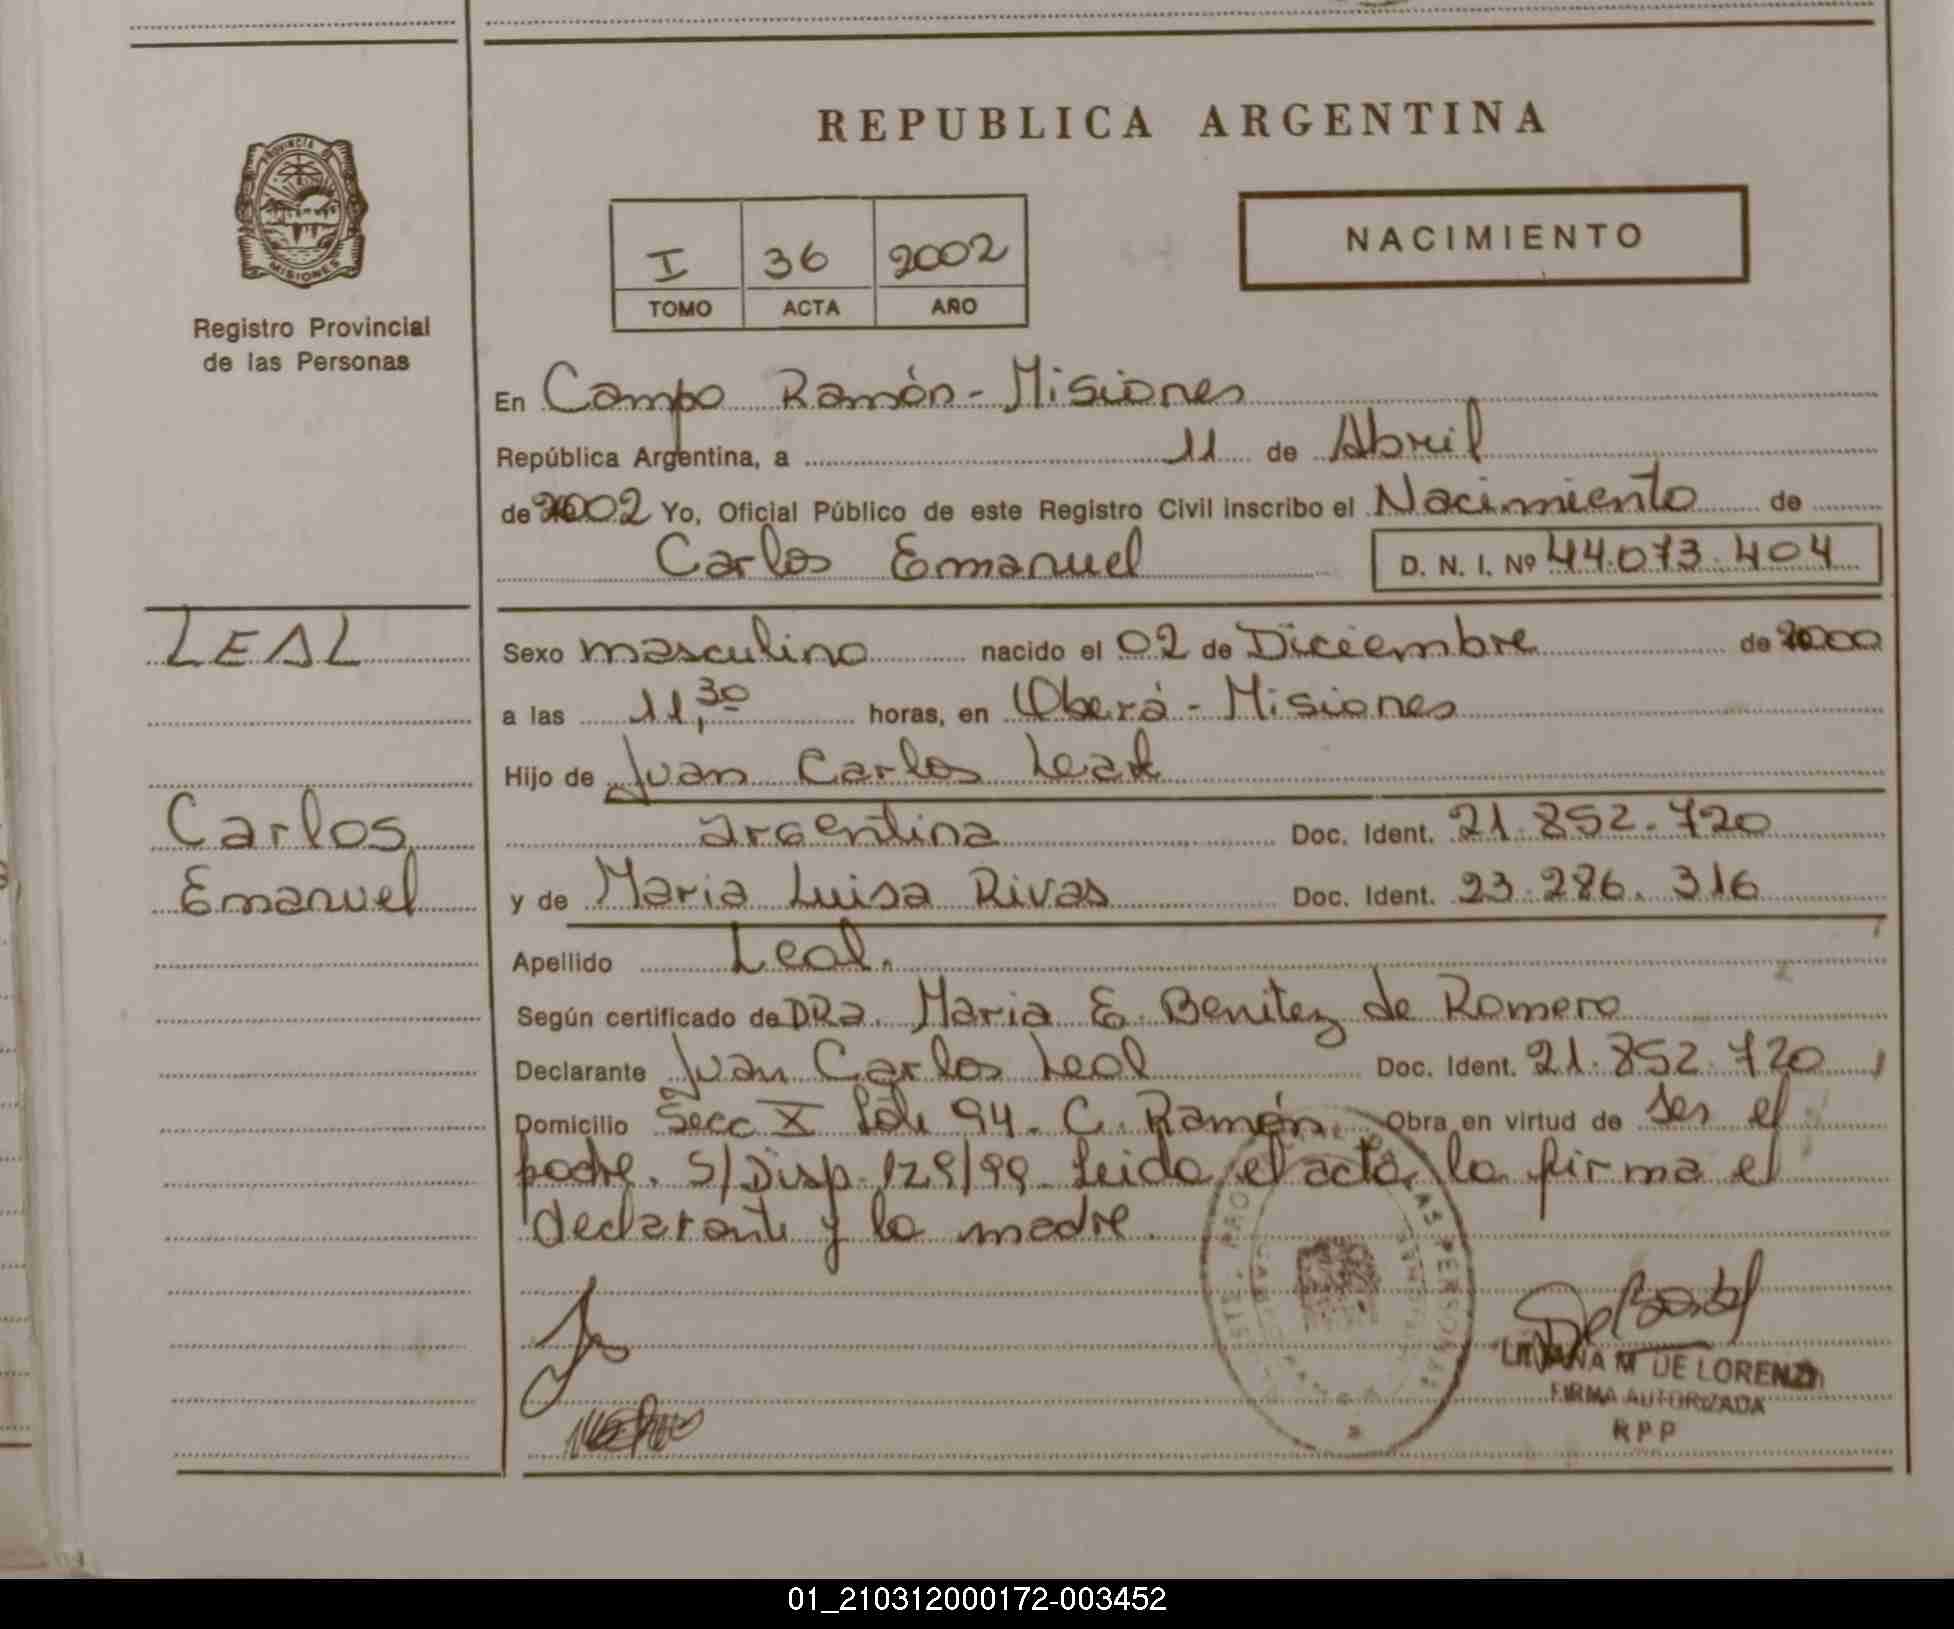 REPUBLICA ARGENTINA
PROVINCIA DE
MISIONES
Registro Provincial
de las Personas
I 36 2002
TOMO ACTA AÑO
NACIMIENTO
En Campo Ramón - Misiones
República Argentina, a 11 de Abril
de 2002 Yo, Oficial Público de este Registro Civil inscribo el Nacimiento de
Carlos Emanuel D. N. I. Nº 44.073.404
LEAL
Carlos
Emanuel
Sexo masculino nacido el 02 de Diciembre de 2000
a las 11,30 horas, en Oberá - Misiones
Hijo de Juan Carlos Leal
argentina Doc. Ident. 21.852.720
y de Maria Luisa Rivas Doc. Ident. 23.286.316
Apellido Leal.
Según certificado de DRa. Maria E. Benitez de Romero
Declarante Juan Carlos Leal Doc. Ident. 21.852.720
Domicilio Secc X Lote 94 - C. Ramón Obra en virtud de ser el
padre. S/Disp. 129/99. Leida el acta, la firma el
declarante y la madre.
LILIANA M DE LORENZI
FIRMA AUTORIZADA
RPP
01_210312000172-003452